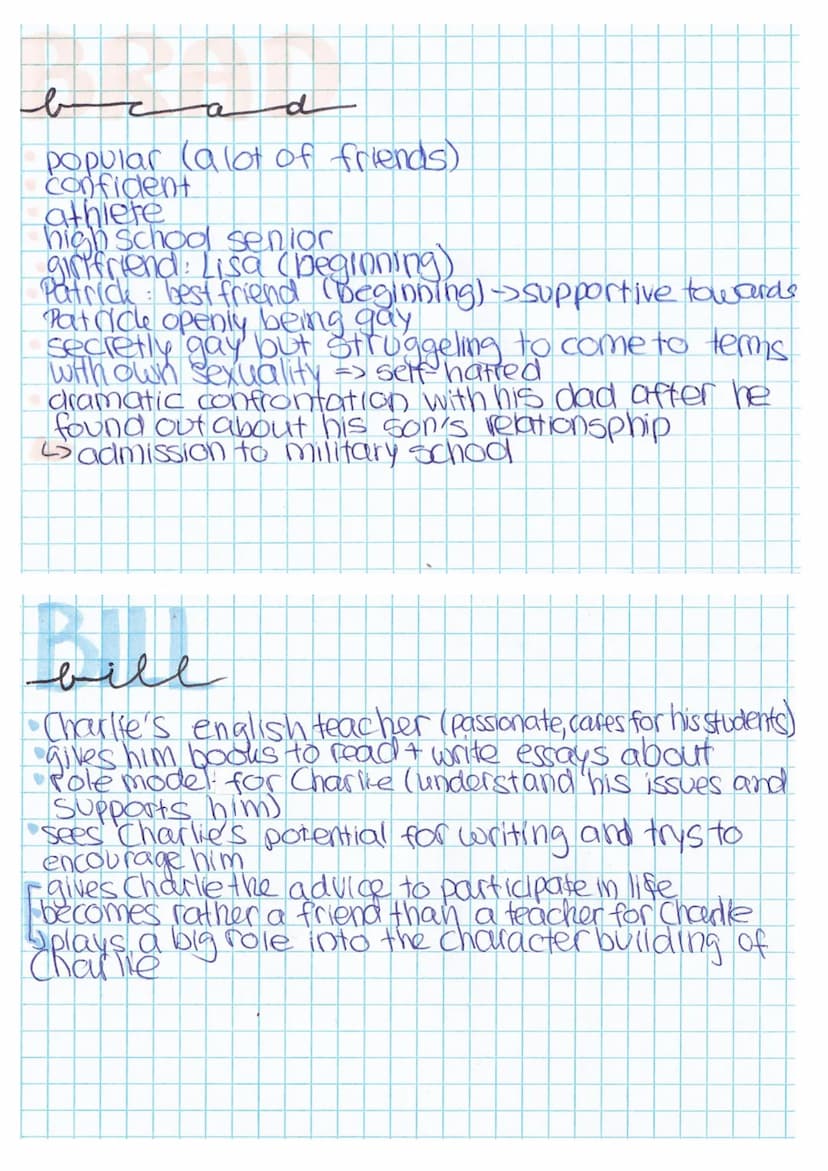 BRAD
brad
popular (alot of friends)
confident
athlete
high school senior
girlfriend: Lisa (beginning)
Patrick: best friend (beginning) -> supportive towards
Patrick openly being gay
secretly gay but struggeling to come to terms
with own sexuality => self hatred
dramatic confrontation with his dad after he
found out about his son's relationsphip
↳ admission to military school
BILL
bill
• Charlie's english teacher (passionate, cares for his students)
• gives him books to read + write essays about
• Role model: for Charlie (understand his issues and
supports him)
• sees Charlie's potential for writing and trys to
encourage him
gives Charlie the advice to participate in life
becomes rather a friend than a teacher for Charlie
↳ plays a big role into the character building of
Charlie